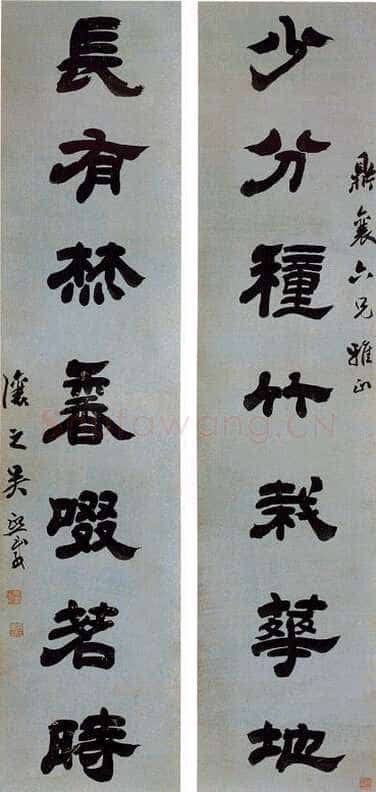 鼎襄六兄雅正
少分種竹栽華地
長有焚香啜茗時
讓之吳熙載
Shufawang.CN